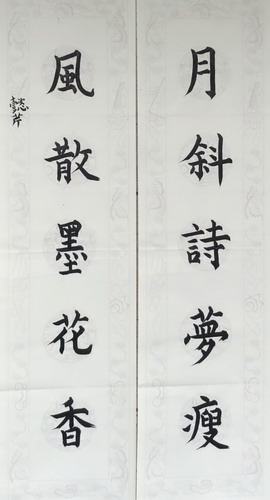 月斜詩夢瘦
風散墨花香
懿芹